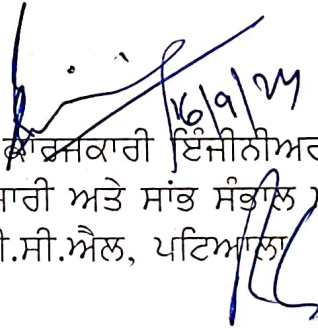 16/9/24
ਕਾਰਜਕਾਰੀ ਇੰਜੀਨੀਅਰ
ਸਾਰੀ ਅਤੇ ਸਾਂਭ ਸੰਭਾਲ
ਸੀ.ਐਲ, ਪਟਿਆਲਾ